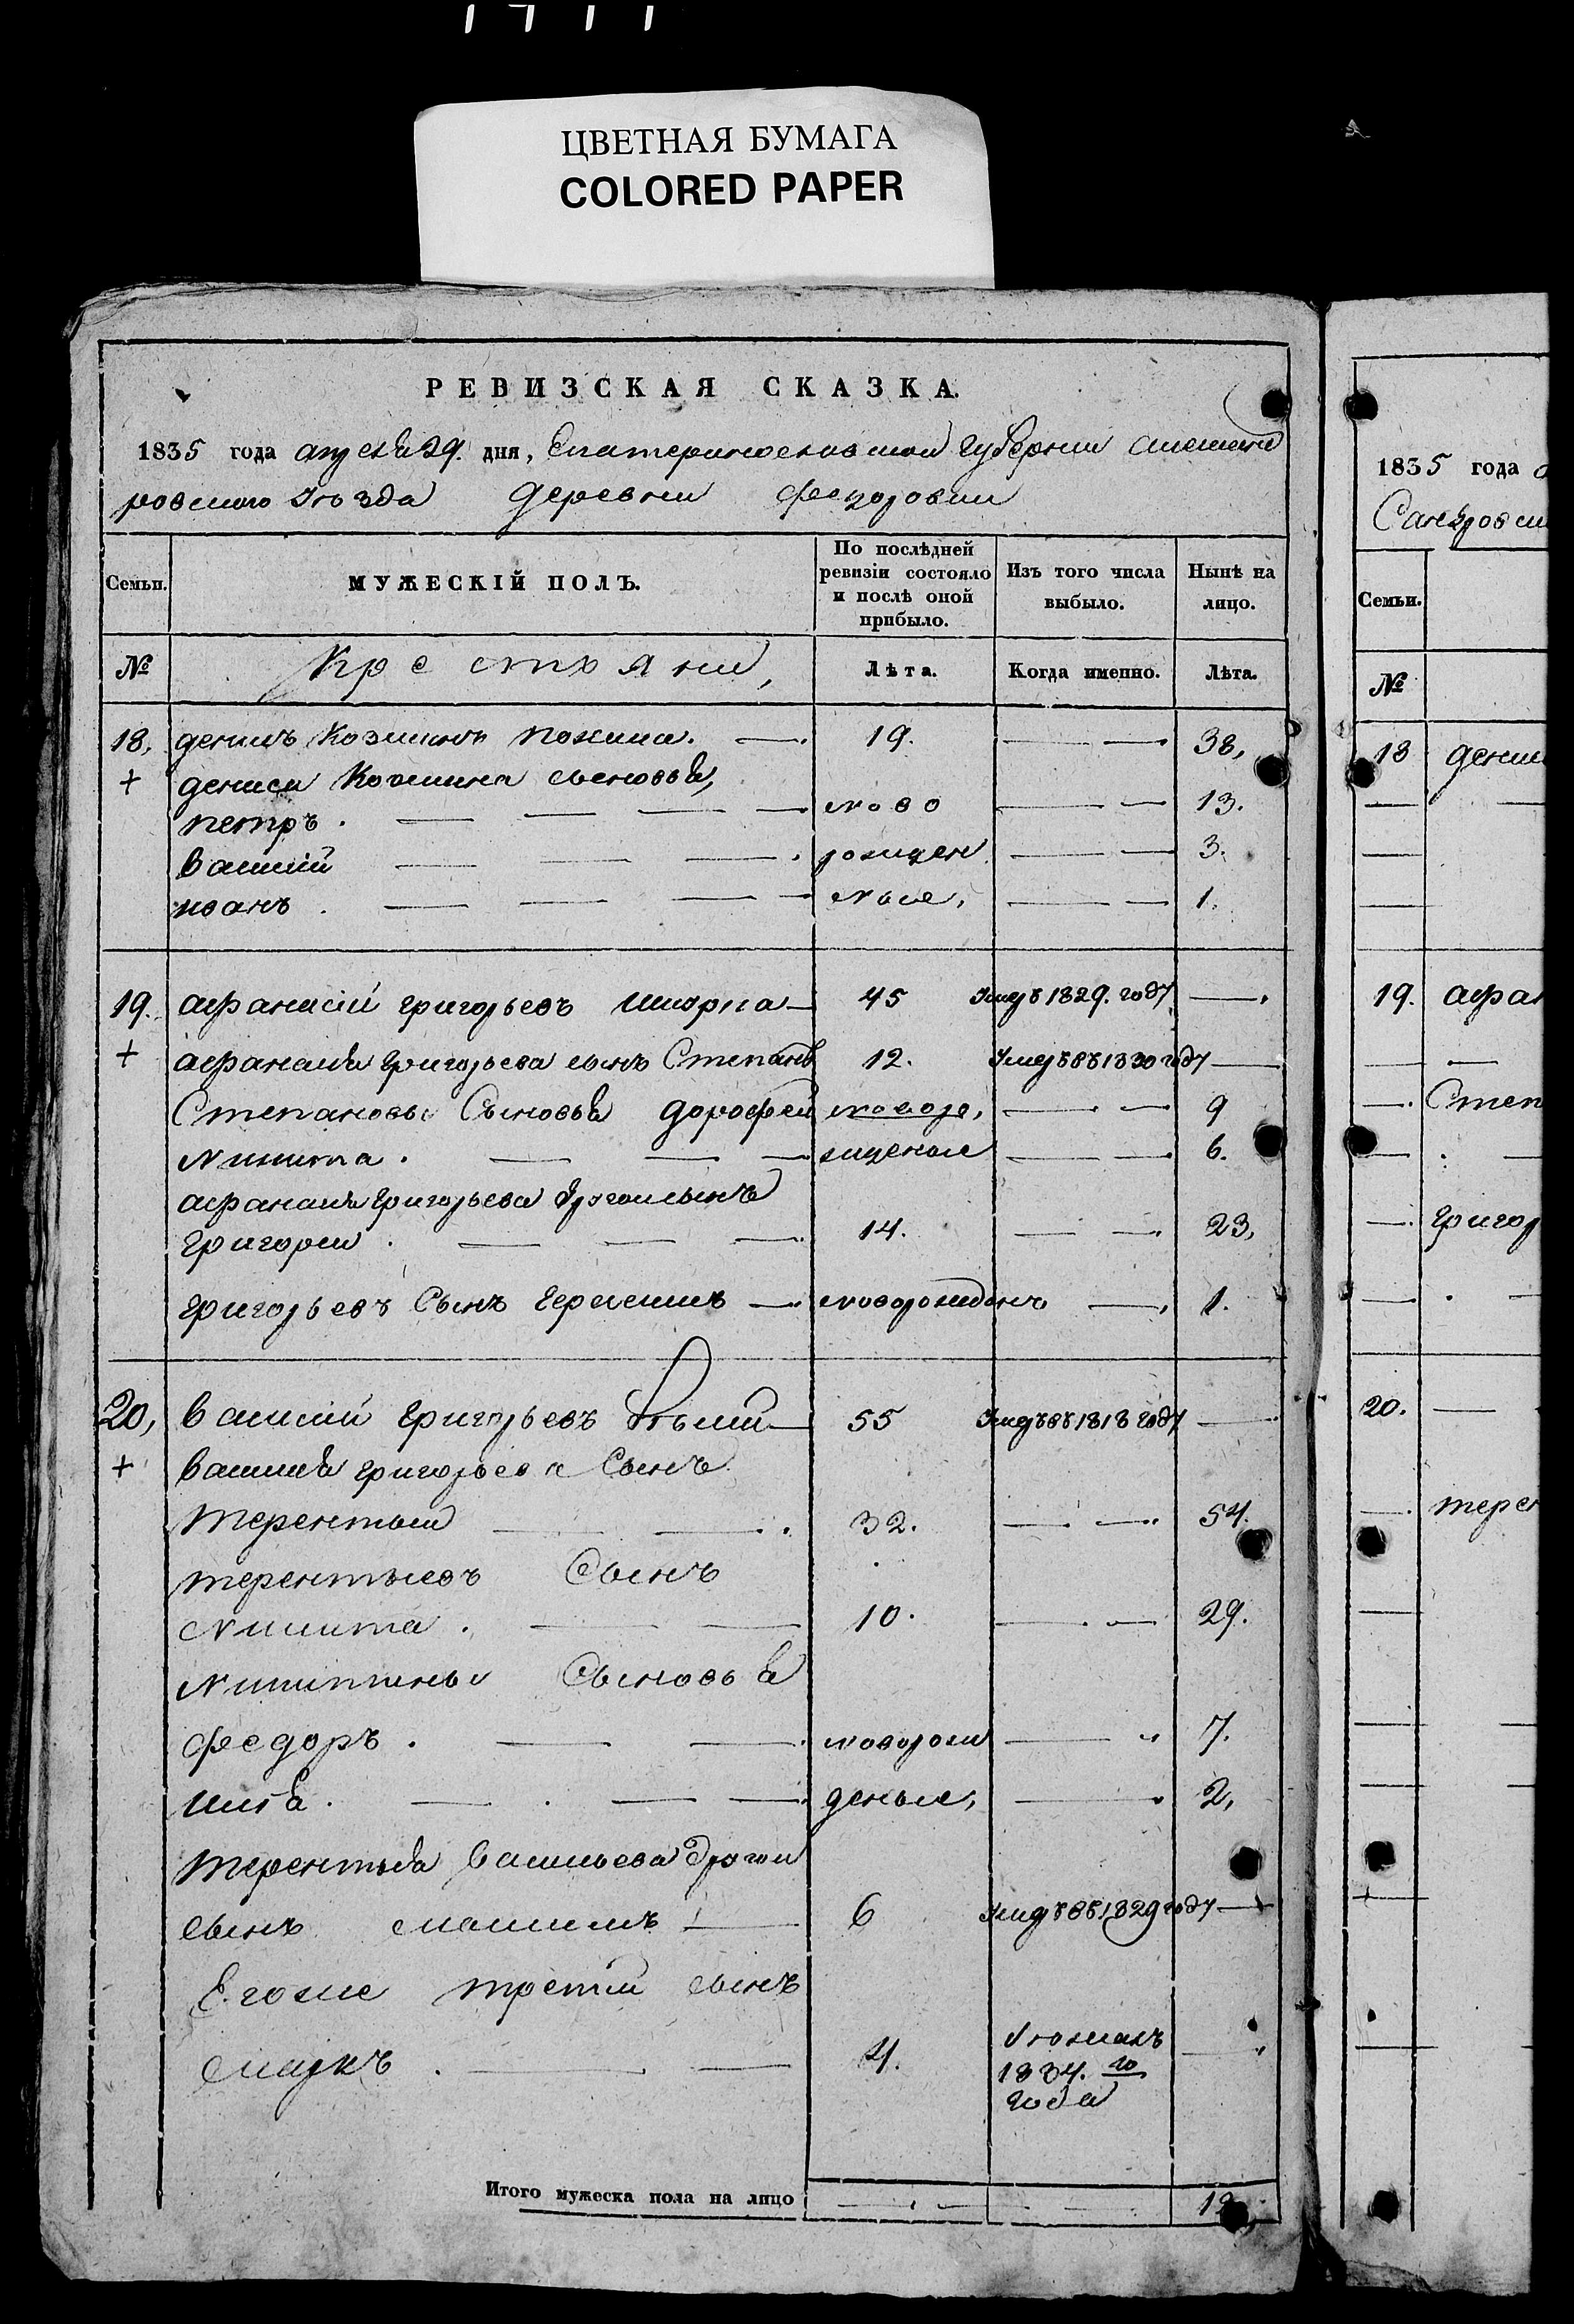 ЦВЕТНАЯ БУМАГА
COLORED PAPER
РЕВИЗСКАЯ СКАЗКА.
1835 года апреля 29. дня, Екатеринославской губернии Александ
ровского уезда деревни Федоровки
Семьи. МУЖЕСКІЙ ПОЛЪ. По послѣдней ревизіи состояло и послѣ оной прибыло. Изъ того числа выбыло. Нынѣ на лицо.
№ Крестьяни, Лѣта. Когда именно. Лѣта.
18, денисъ Козминъ 19. 38,
+ дениса Козмина сыновья,
петръ. ново 13.
василій рожден 3.
иванъ. ные, 1.
19. афанасій григорьевъ 45 Умеръ 1829. году
+ афанасия григорьева сынъ Степанъ 12. Умеръ въ 1830 году
Степановы Сыновья дорофей новоро, 9
никита. жденые 6.
афанасия григорьева другой сынъ
григорей. 14. 23,
григорьевъ Сынъ новорожденъ 1.
20, василій григорьевъ 55 Умеръ въ 1818 году
+ василия григорьева Сынъ
терентьей 32. 54.
терентьевъ Сынъ
никита. 10. 29.
никитины Сыновья
федоръ. новорож 7.
илья. деные, 2,
терентья васильева другой
сынъ максимъ 6 Умеръ въ 1829 году
Егоже третий сынъ
маркъ. 4. 1834. го
года
Итого мужеска пола на лицо
1835 года
Семьи.
№
18 дени
19. афан
Степ
григор
20.
терен